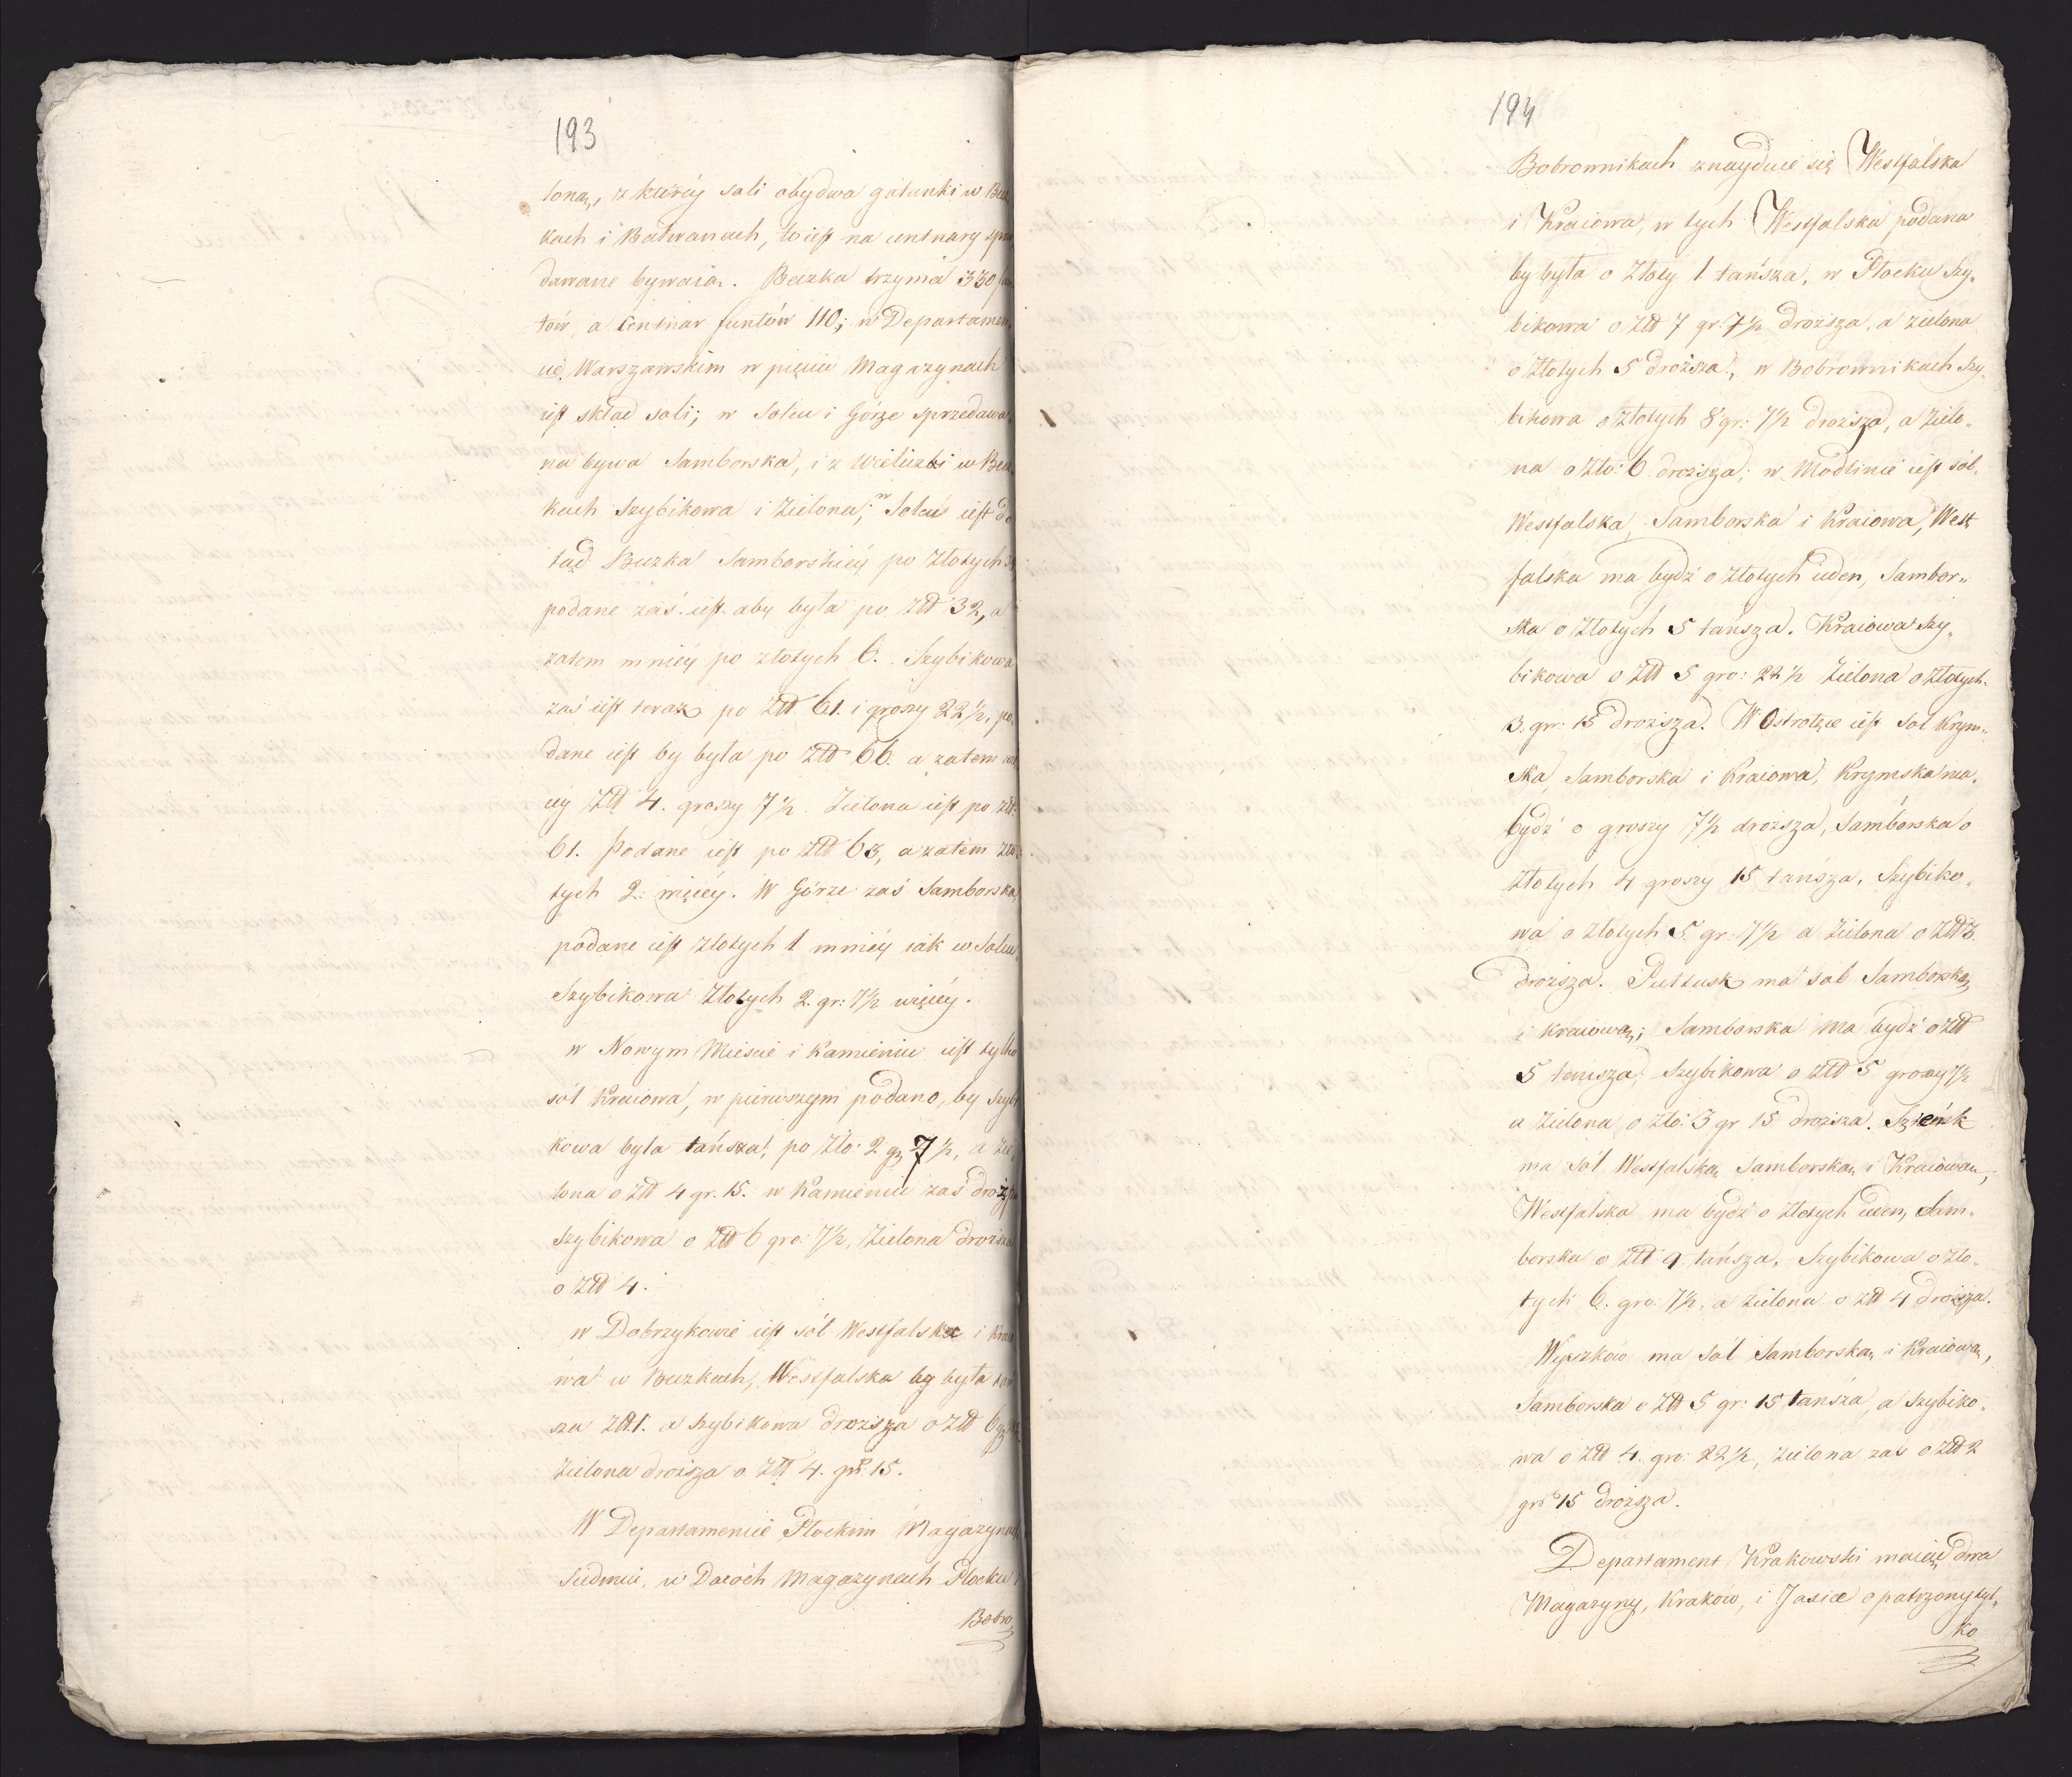 193
loną, z któréy soli obydwa gatunki w Becz
kach i Bałwanach, to iest na centnary sprze
dawane bywaią. Beczka trzyma 330 fun
tów, a Centnar funtów 110; w Departamen
cie Warszawskim w pięciu Magazynach
iest skład soli; w Solcu i Górze sprzedawa
na bywa Samborska, i z Wieliczki w Becz
kach Szybikowa i Zielona; w Solcu iest do
tąd Beczka Samborskiéy po Złotych 38
podane zaś iest aby była po Złt 32, a
zatem mniéy po złotych 6. Szybikowa
zaś iest teraz po Złt 61. i groszy 22½, po
dane iest by była po Złt 66. a zatem wię
céy Złt 4. groszy 7½. Zielona iest po złt:
61. Podane iest po Złt 63, a zatem Zło
tych 2. więcéy. W Górze zaś Samborska
podane iest złotych 1 mniéy iak w Solcu
Szybikowa Złotych 2. gr: 7½ więcéy.
w Nowym Mieście i Kamieniu iest tylko
sól Kraiowa, w pierwszym podano, by Szybi
kowa była tańsza, po Zło: 2 gr 7½, a Zie
lona o Złt 4 gr. 15. w Kamieniu zaś droższa
Szybikowa o Złt 6 gro: 7½, Zielona droższa
o Złt 4.
w Dobrzykowie iest sól Westfalska i Kraio
wa w Beczkach, Westfalska by była tań
sza Złt 1. a Szybikowa droższa o Złt 6 gr
Zielona droższa o Złt 4. gr. 15.
W Departamencie Płockim Magazynach
Siedmiu, w Dwóch Magazynach Płocku i
Bobro
194
Bobrownikach znayduie się Westfalska
i Kraiowa, w tych Westfalska podana
by była o Złoty 1 tańsza, w Płocku Szy-
bikowa o Złt 7 gr: 7½ droższa, a zielona
o Złotych 5 droższa, w Bobrownikach Szy
bikowa o Złotych 8 gr: 7½ droższa, a Zielo-
na o Zło: 6 droższa; w Modlinie iest sól
Westfalska, Samborska i Kraiowa, West
falska ma bydź o Złotych ieden, Sambor-
ska o Złotych 5 tańsza. Kraiowa Szy-
bikowa o Złt 5 gro: 22½ Zielona o Złotych
3. gr: 15 droższa. W Ostrołęce iest Sol Krym-
ska, Samborska i Kraiowa, Krymska ma
bydź o groszy 7½ droższa, Samborska o
Złotych 4 groszy 15 tańsza, Szybiko-
wa o złotych 5 gr: 7½ a Zielona o Złt 3
droższa. Pułtusk ma sol Samborską
i kraiową; Samborska ma bydź o Złt
5 tańsza; Szybikowa o Złt 5 groszy 7½
a Zielona o Zło: 3 gr 15 droższa. Szreńsk
ma sól Westfalską Samborską i Kraiową,
Westfalska ma bydź o Złotych ieden, Sam-
borska o Złt 4 tańsza, Szybikowa o Zło-
tych 6. gro: 7½, a zielona o złt 4 droższa.
Wyszków ma sól Samborską i Kraiową,
Samborska o Złt 5 gr: 15 tańsza, a Szybiko-
wa o Złt 4. gro: 22½, Zielona zaś o Złt 2
gro 15 droższa.
Departament Krakowski maiąc dwa
Magazyny, Kraków, i Jasice opatrzony tyl-
ko